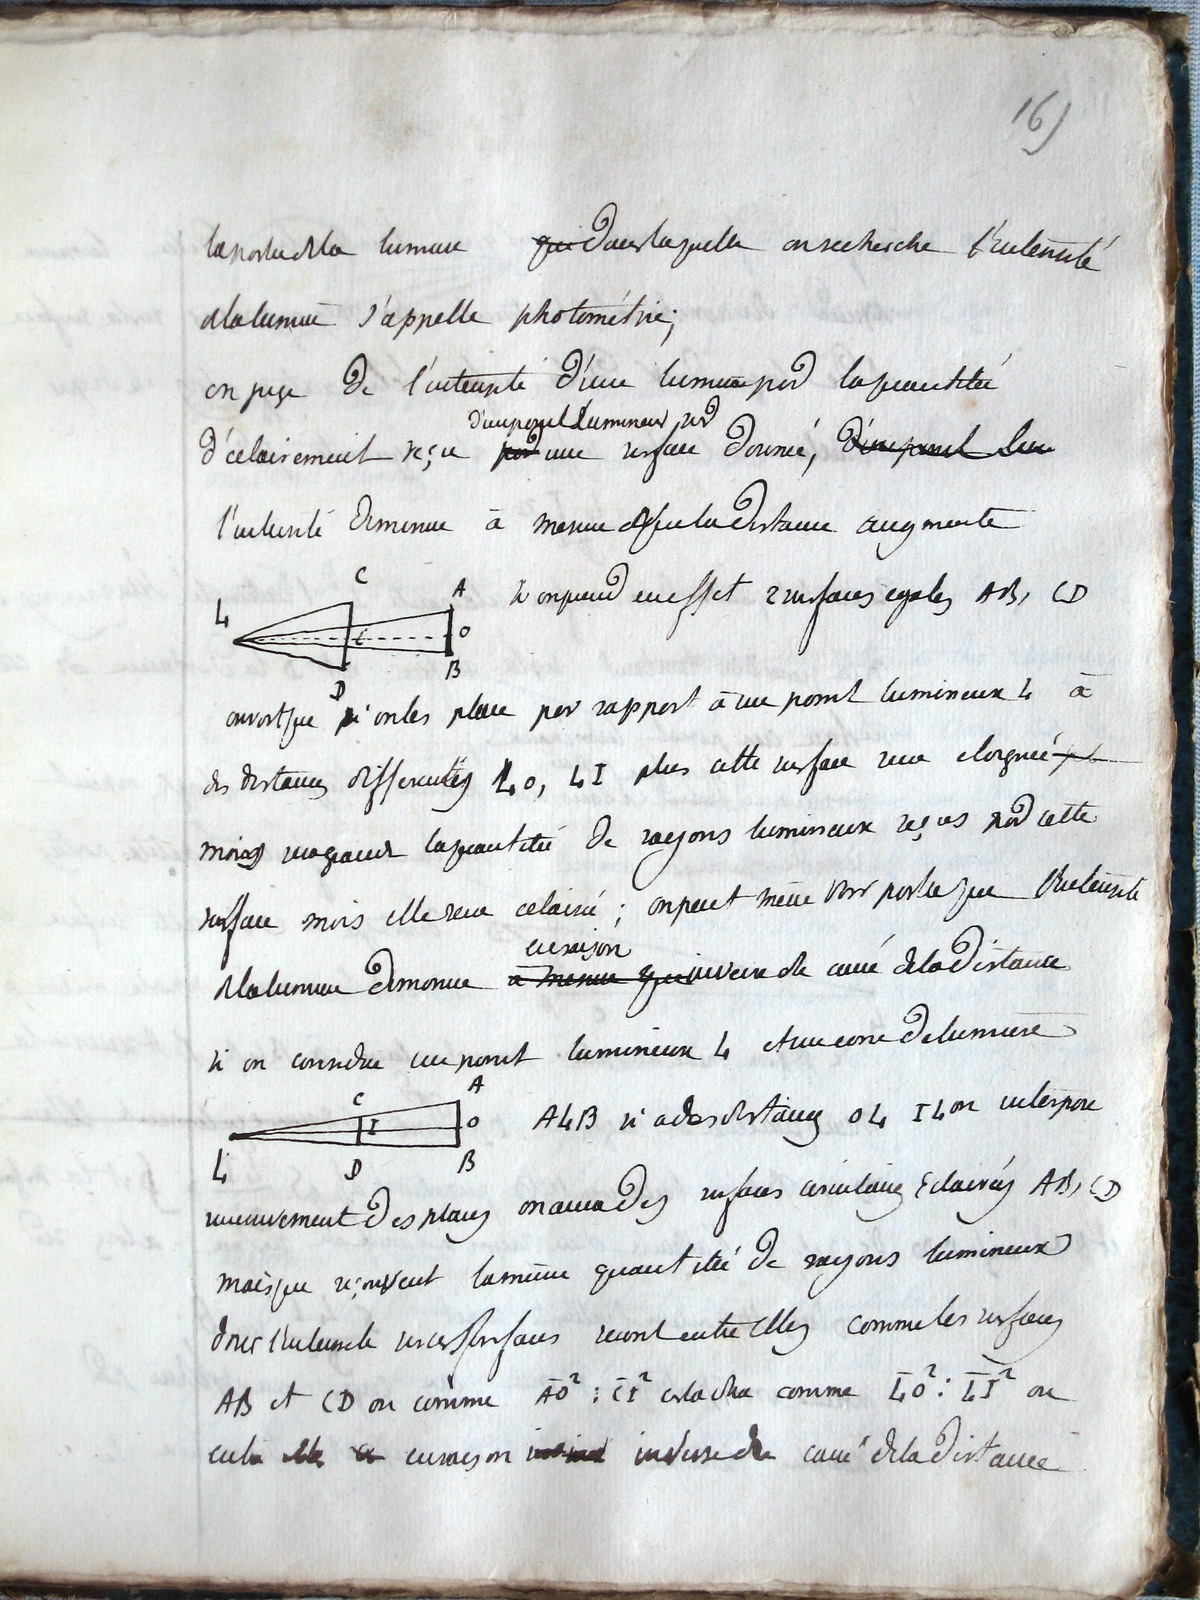 165
la partie de la lumiere qui dans laquelle on recherche l'intensité
de la lumiere s'appelle photométrie;
on juge de l'intensité d'une lumiere par la quantité
d'un point lumineux sur
d'eclairement reçu par une surface donnée, d'un point lum
l'intensité diminue à mesure que la distance augmente
L C A I O D B
si on prend en effet 2 surfaces egales AB, CD
on voit que si on les place par rapport à un point lumineux L à
des distances differentes LO, LI plus cette surface sera eloignée pl
moins sera grande la quantité de rayons lumineux reçus par cette
surface mois elle sera eclairé; on peut même voir que l'intensité
en raison
de la lumiere diminue à mesure que inverse du carré de la distance
si on considre un point lumineux L et un cone de lumiere
L C A I O D B
ALB si a des distances OL IL on interpose
des plans on aura des surfaces circulaires Eclairées AB, CD
mais que reçoivent la même quantité de rayons lumineux
donc l'intensité sur ces surfaces seront entre elles comme les surfaces
AB et CD ou comme AO² : CI² cela dire comme LO² : LI² ou
en raison inverse du carré de la distance